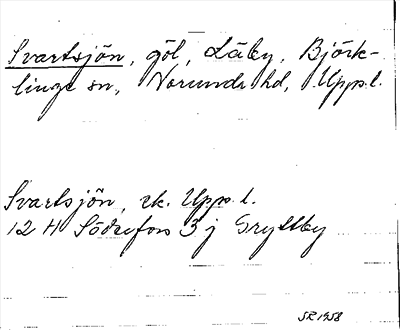 Svartsjön, göl, Läby, Björk-
linge sn, Norunda hd, Uppl.
Svartsjön, rk. Uppl.
12 H Söderfors 3 j Gryttby
SR 1958